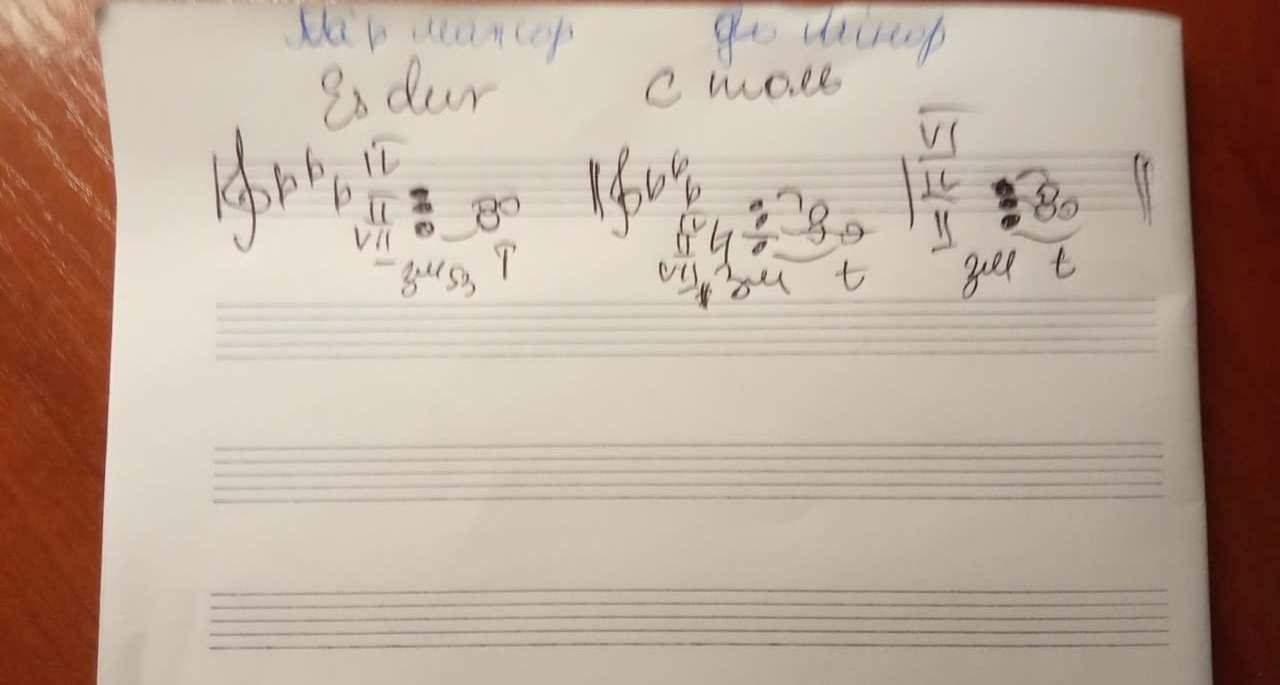 Мі b мажор до мінор
Es dur c моль
IV VI
II IV
VII IV II II
VII
зм53 T зм t зм t